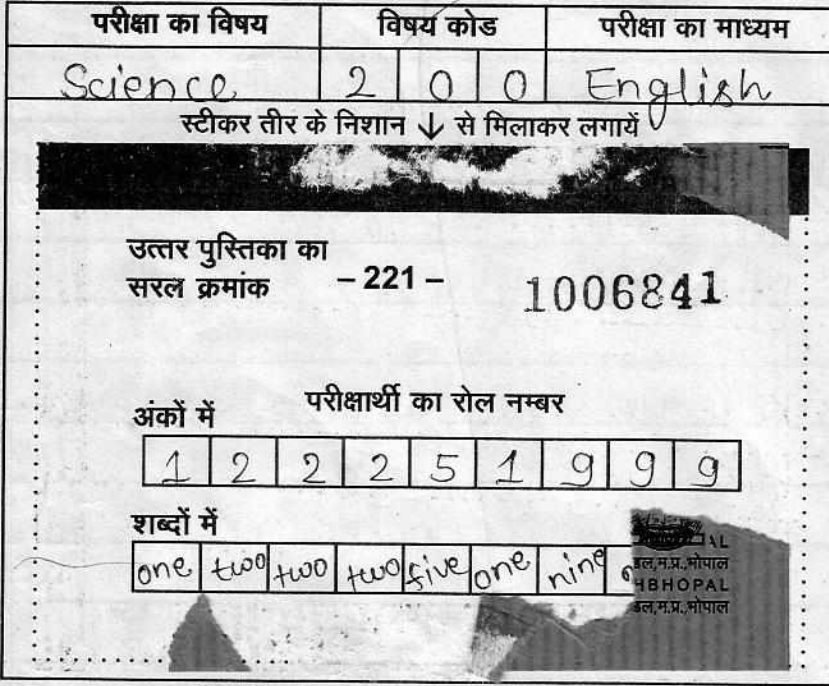 परीक्षा का विषय विषय कोड परीक्षा का माध्यम
Science 2 0 0 English
स्टीकर तीर के निशान ↓ से मिलाकर लगायें
उत्तर पुस्तिका का
सरल क्रमांक – 221 – 1006841
परीक्षार्थी का रोल नम्बर
अंकों में
1 2 2 2 5 1 9 9 9
शब्दों में
one two two two five one nine
AL
डल,म.प्र.,भोपाल
HBHOPAL
डल,म.प्र.,भोपाल